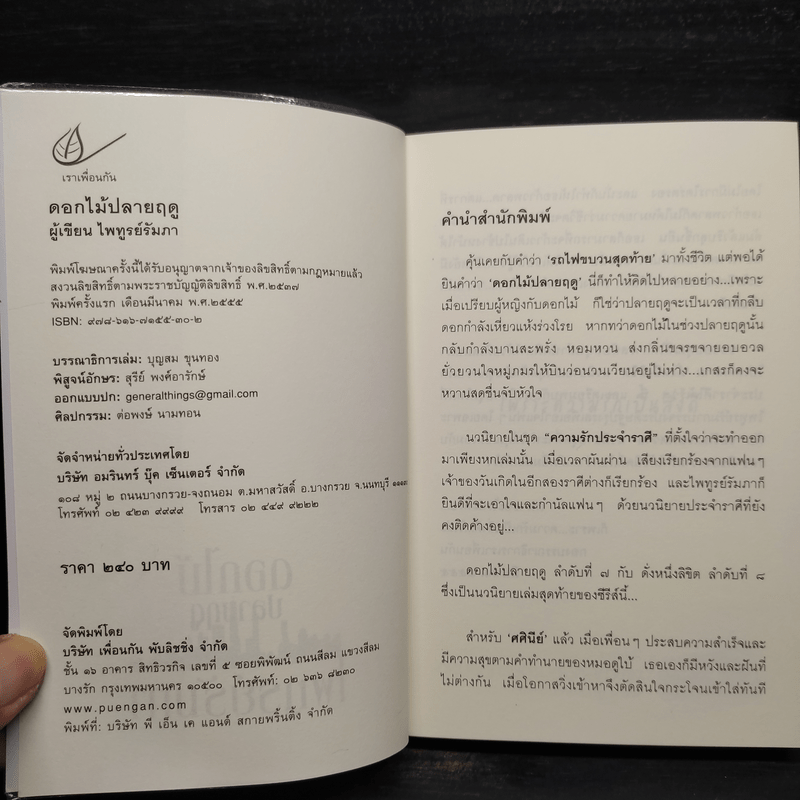 เราเพื่อนกัน
ดอกไม้ปลายฤดู
ผู้เขียน ไพทูรย์รัมภา
พิมพ์โฆษณาครั้งนี้ได้รับอนุญาตจากเจ้าของลิขสิทธิ์ตามกฎหมายแล้ว
สงวนลิขสิทธิ์ตามพระราชบัญญัติลิขสิทธิ์ พ.ศ.๒๕๓๗
พิมพ์ครั้งแรก เดือนมีนาคม พ.ศ.๒๕๕๕
ISBN: ๙๗๘-๖๑๖-๗๑๕๕-๓๐-๒
บรรณาธิการเล่ม: บุญสม ขุนทอง
พิสูจน์อักษร: สุรีย์ พงศ์อารักษ์
ออกแบบปก: generalthings@gmail.com
ศิลปกรรม: ต่อพงษ์ นามทอน
จัดจำหน่ายทั่วประเทศโดย
บริษัท อมรินทร์ บุ๊ค เซ็นเตอร์ จำกัด
๑๐๘ หมู่ ๒ ถนนบางกรวย-จงถนอม ต.มหาสวัสดิ์ อ.บางกรวย จ.นนทบุรี ๑๑๑๓๐
โทรศัพท์ ๐๒ ๔๒๓ ๙๙๙๙ โทรสาร ๐๒ ๔๔๙ ๙๒๒๒
ราคา ๒๔๐ บาท
จัดพิมพ์โดย
บริษัท เพื่อนกัน พับลิชชิ่ง จำกัด
ชั้น ๑๖ อาคาร สิทธิวรกิจ เลขที่ ๕ ซอยพิพัฒน์ ถนนสีลม แขวงสีลม
บางรัก กรุงเทพมหานคร ๑๐๕๐๐ โทรศัพท์: ๐๒ ๖๓๖ ๘๒๓๐
www.puengan.com
พิมพ์ที่: บริษัท พี เอ็น เค แอนด์ สกายพริ้นติ้ง จำกัด
คำนำสำนักพิมพ์
คุ้นเคยกับคำว่า ‘รถไฟขบวนสุดท้าย’ มาทั้งชีวิต แต่พอได้
ยินคำว่า ‘ดอกไม้ปลายฤดู’ นี่ก็ทำให้คิดไปหลายอย่าง...เพราะ
เมื่อเปรียบผู้หญิงกับดอกไม้ ก็ใช่ว่าปลายฤดูจะเป็นเวลาที่กลีบ
ดอกกำลังเหี่ยวแห้งร่วงโรย หากทว่าดอกไม้ในช่วงปลายฤดูนั้น
กลับกำลังบานสะพรั่ง หอมหวน ส่งกลิ่นขจรขจายอบอวล
ยั่วยวนใจหมู่ภมรให้บินว่อนวนเวียนอยู่ไม่ห่าง...เกสรก็คงจะ
หวานสดชื่นจับหัวใจ
นวนิยายในชุด “ความรักประจำราศี” ที่ตั้งใจว่าจะทำออก
มาเพียงหกเล่มนั้น เมื่อเวลาผันผ่าน เสียงเรียกร้องจากแฟนๆ
เจ้าของวันเกิดในอีกสองราศีต่างก็เรียกร้อง และไพทูรย์รัมภาก็
ยินดีที่จะเอาใจและกำนัลแฟนๆ ด้วยนวนิยายประจำราศีที่ยัง
คงติดค้างอยู่...
ดอกไม้ปลายฤดู ลำดับที่ ๗ กับ ดั่งหนึ่งลิขิต ลำดับที่ ๘
ซึ่งเป็นนวนิยายเล่มสุดท้ายของซีรีส์นี้...
สำหรับ ‘ศศินีย์’ แล้ว เมื่อเพื่อนๆ ประสบความสำเร็จและ
มีความสุขตามคำทำนายของหมอดูไป๋ เธอเองก็มีหวังและฝันที่
ไม่ต่างกัน เมื่อโอกาสวิ่งเข้าหาจึงตัดสินใจกระโจนเข้าใส่ทันที